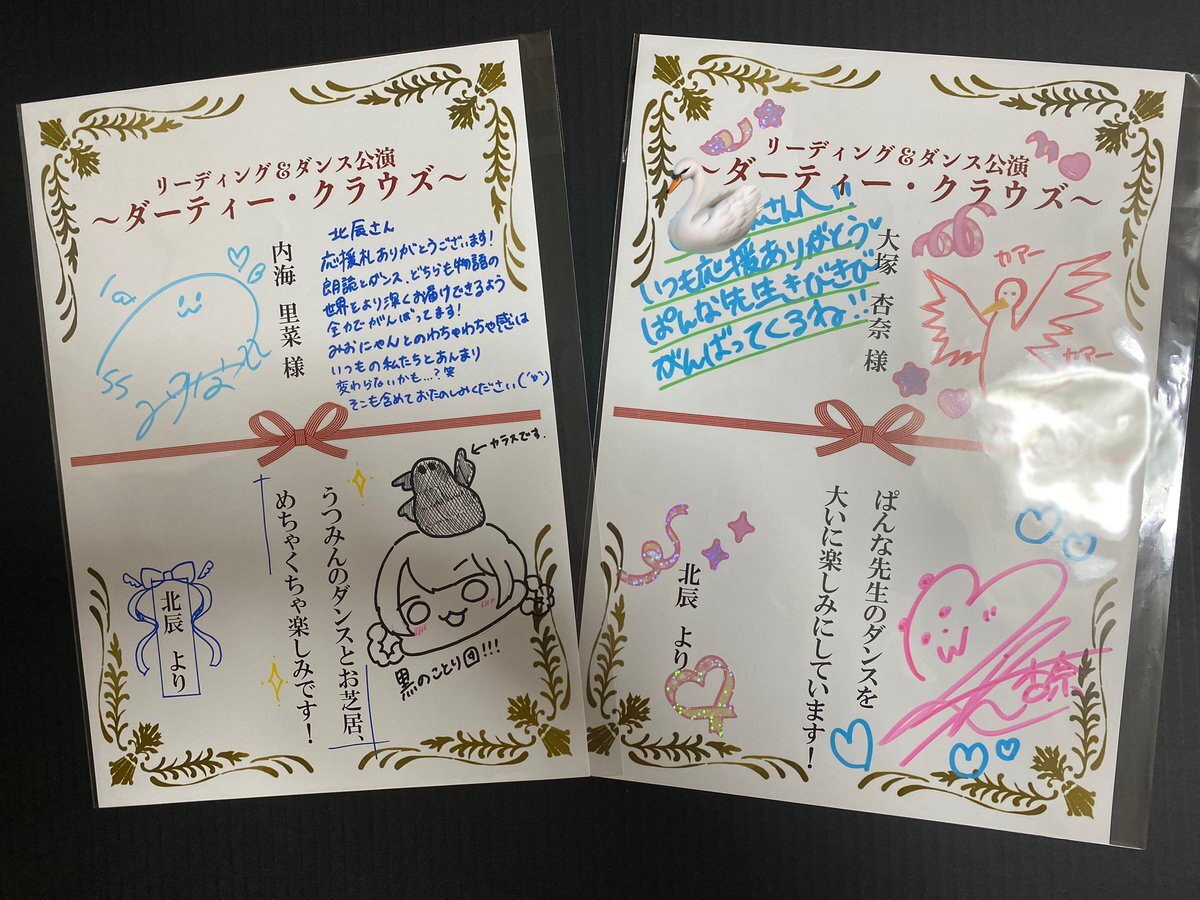 リーディング&ダンス公演
～ダーティー・クラウズ～
内海 里菜 様
北辰さん
応援札ありがとうございます!
朗読とダンス、どちらも物語の
世界をより深くお届けできるよう
全力でがんばってます!
みおにゃんとのわちゃわちゃ感は
いつもの私たちとあんまり
変わらないかも…?笑
そこも含めておたのしみください
←カラスです.
うつみんのダンスとお芝居、
めちゃくちゃ楽しみです!
黒のことり団!!!
北辰 より
リーディング&ダンス公演
～ダーティー・クラウズ～
大塚 杏奈 様
さんへ!!
いつも応援ありがとう♥
ぱんな先生きびきび
がんばってくるね!!
カアー
カアー
ぱんな先生のダンスを
大いに楽しみにしています!
北辰 より
杏奈